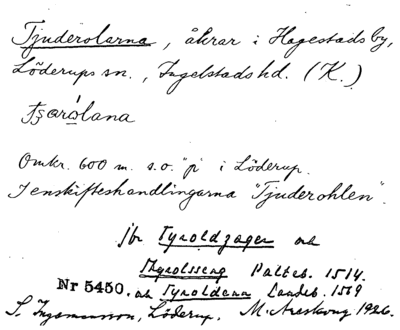 Tjuderolarna, åkrar i Hagestads by,
Löderups sn., Ingelstads hd. (K.)
Omkr. 600 m. s.o. "p" i Löderup.
I enskifteshandlingarna "Tjuderohlen".
jfr Tyroldzager och
Thyrolsseng Palteb. 1514.
Nr 5450. och Tyroldenn Landeb. 1569
S. Ingemansson, Löderup. M. Areskoug 1926.